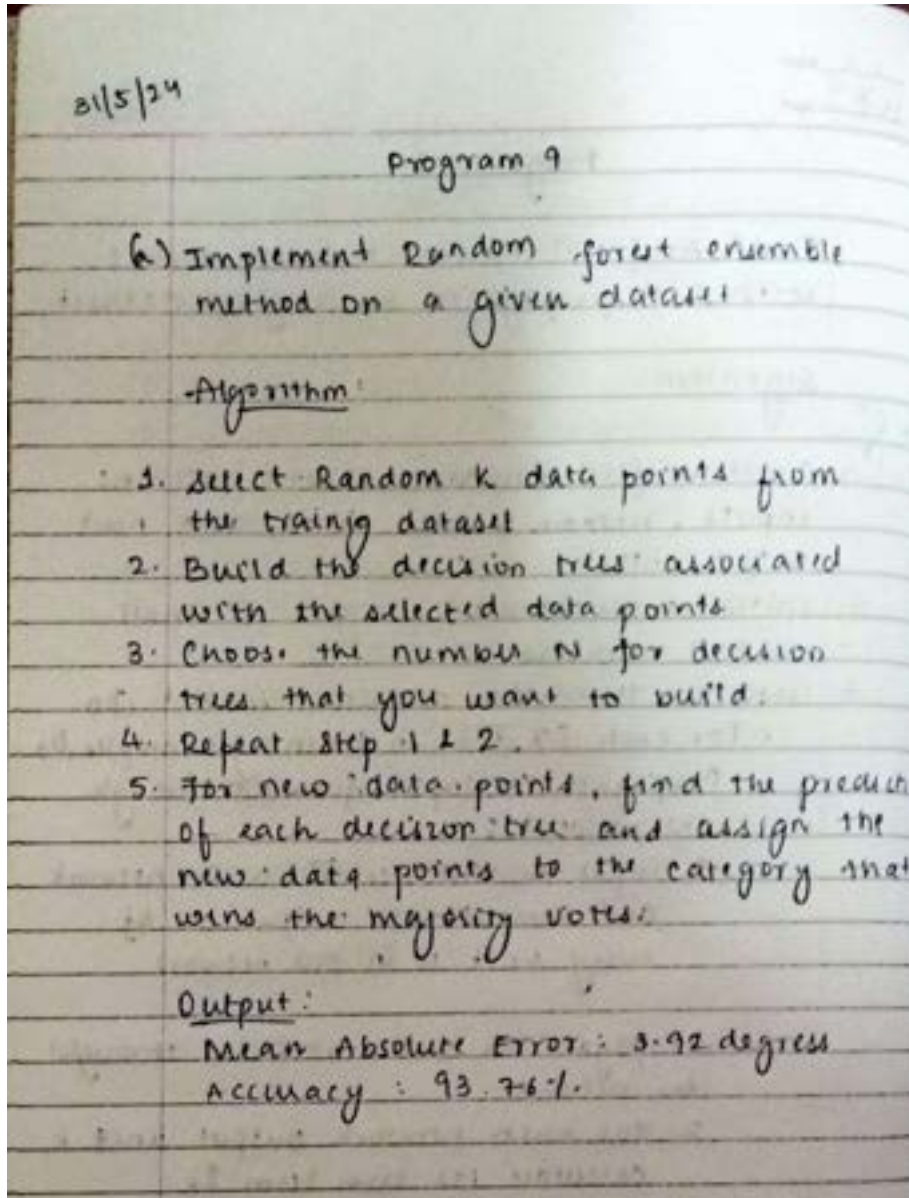 31/5/24
Program 9
a) Implement Random forest ensemble
method on a given dataset
Algorithm:
1. Select Random K data points from
the trainig dataset
2. Build the decision trees associated
with the selected data points
3. Choose the number N for decision
trees that you want to build.
4. Repeat Step 1 & 2.
5. For new data points, find the predicn
of each decision tree and assign the
new data points to the category that
wins the majority votes.
Output:
Mean Absolute Error: 3.92 degress
Accuracy : 93.76%.